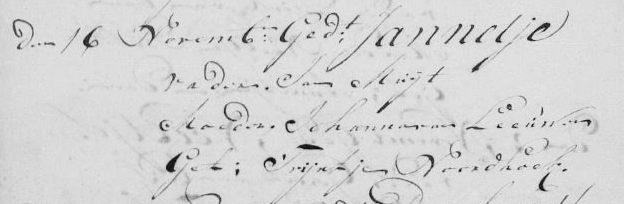 den 16 Novemb: Gedt: Jannetje
vader. Jan Muijt
Moeder. Johanna van Leeuwen
Get: Trijntje Noordhoek.